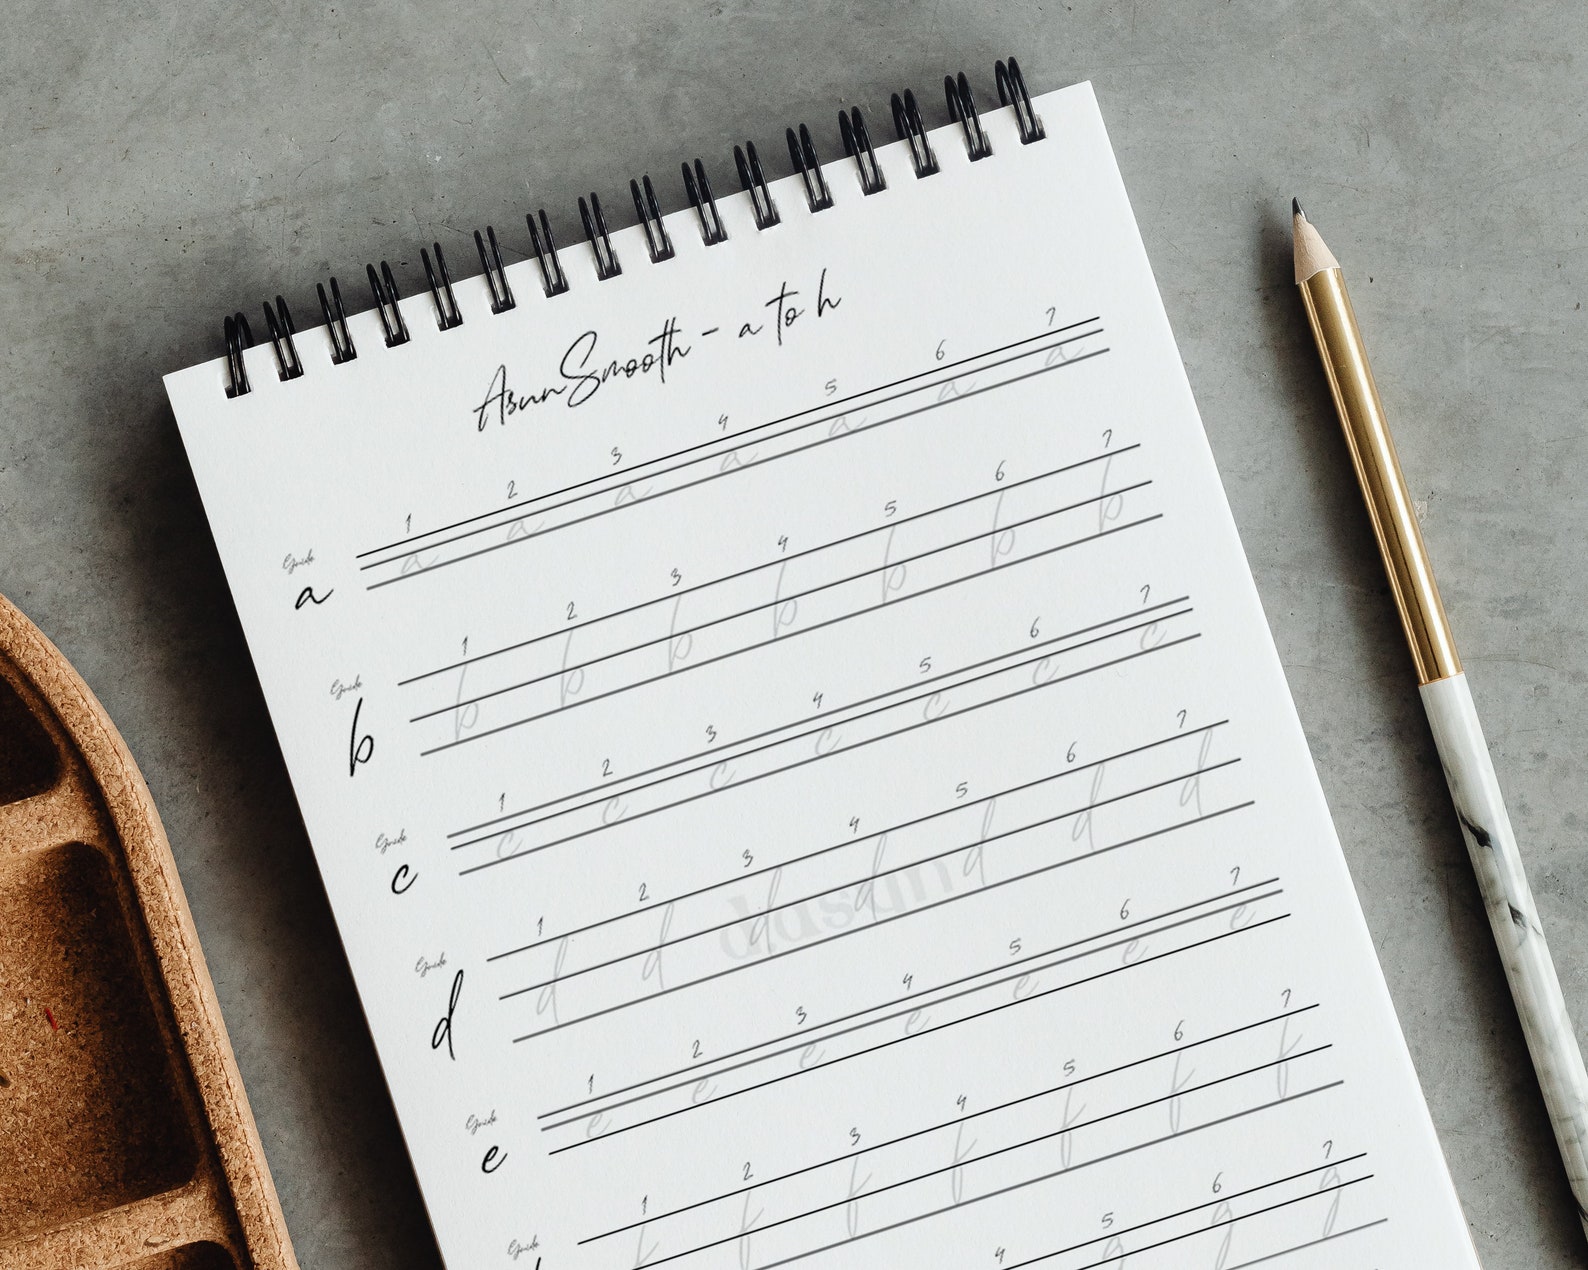 AsunSmooth - a to h
1 2 3 4 5 6 7
Guide
a a a a a a a a
1 2 3 4 5 6 7
Guide
b b b b b b b b
1 2 3 4 5 6 7
Guide
c c c c c c c c
1 2 3 4 5 6 7
Guide
d d d d d d d d
dasun
1 2 3 4 5 6 7
Guide
e e e e e e e e
1 2 3 4 5 6 7
Guide
f f f f f f f
4 5 6 7
g g g